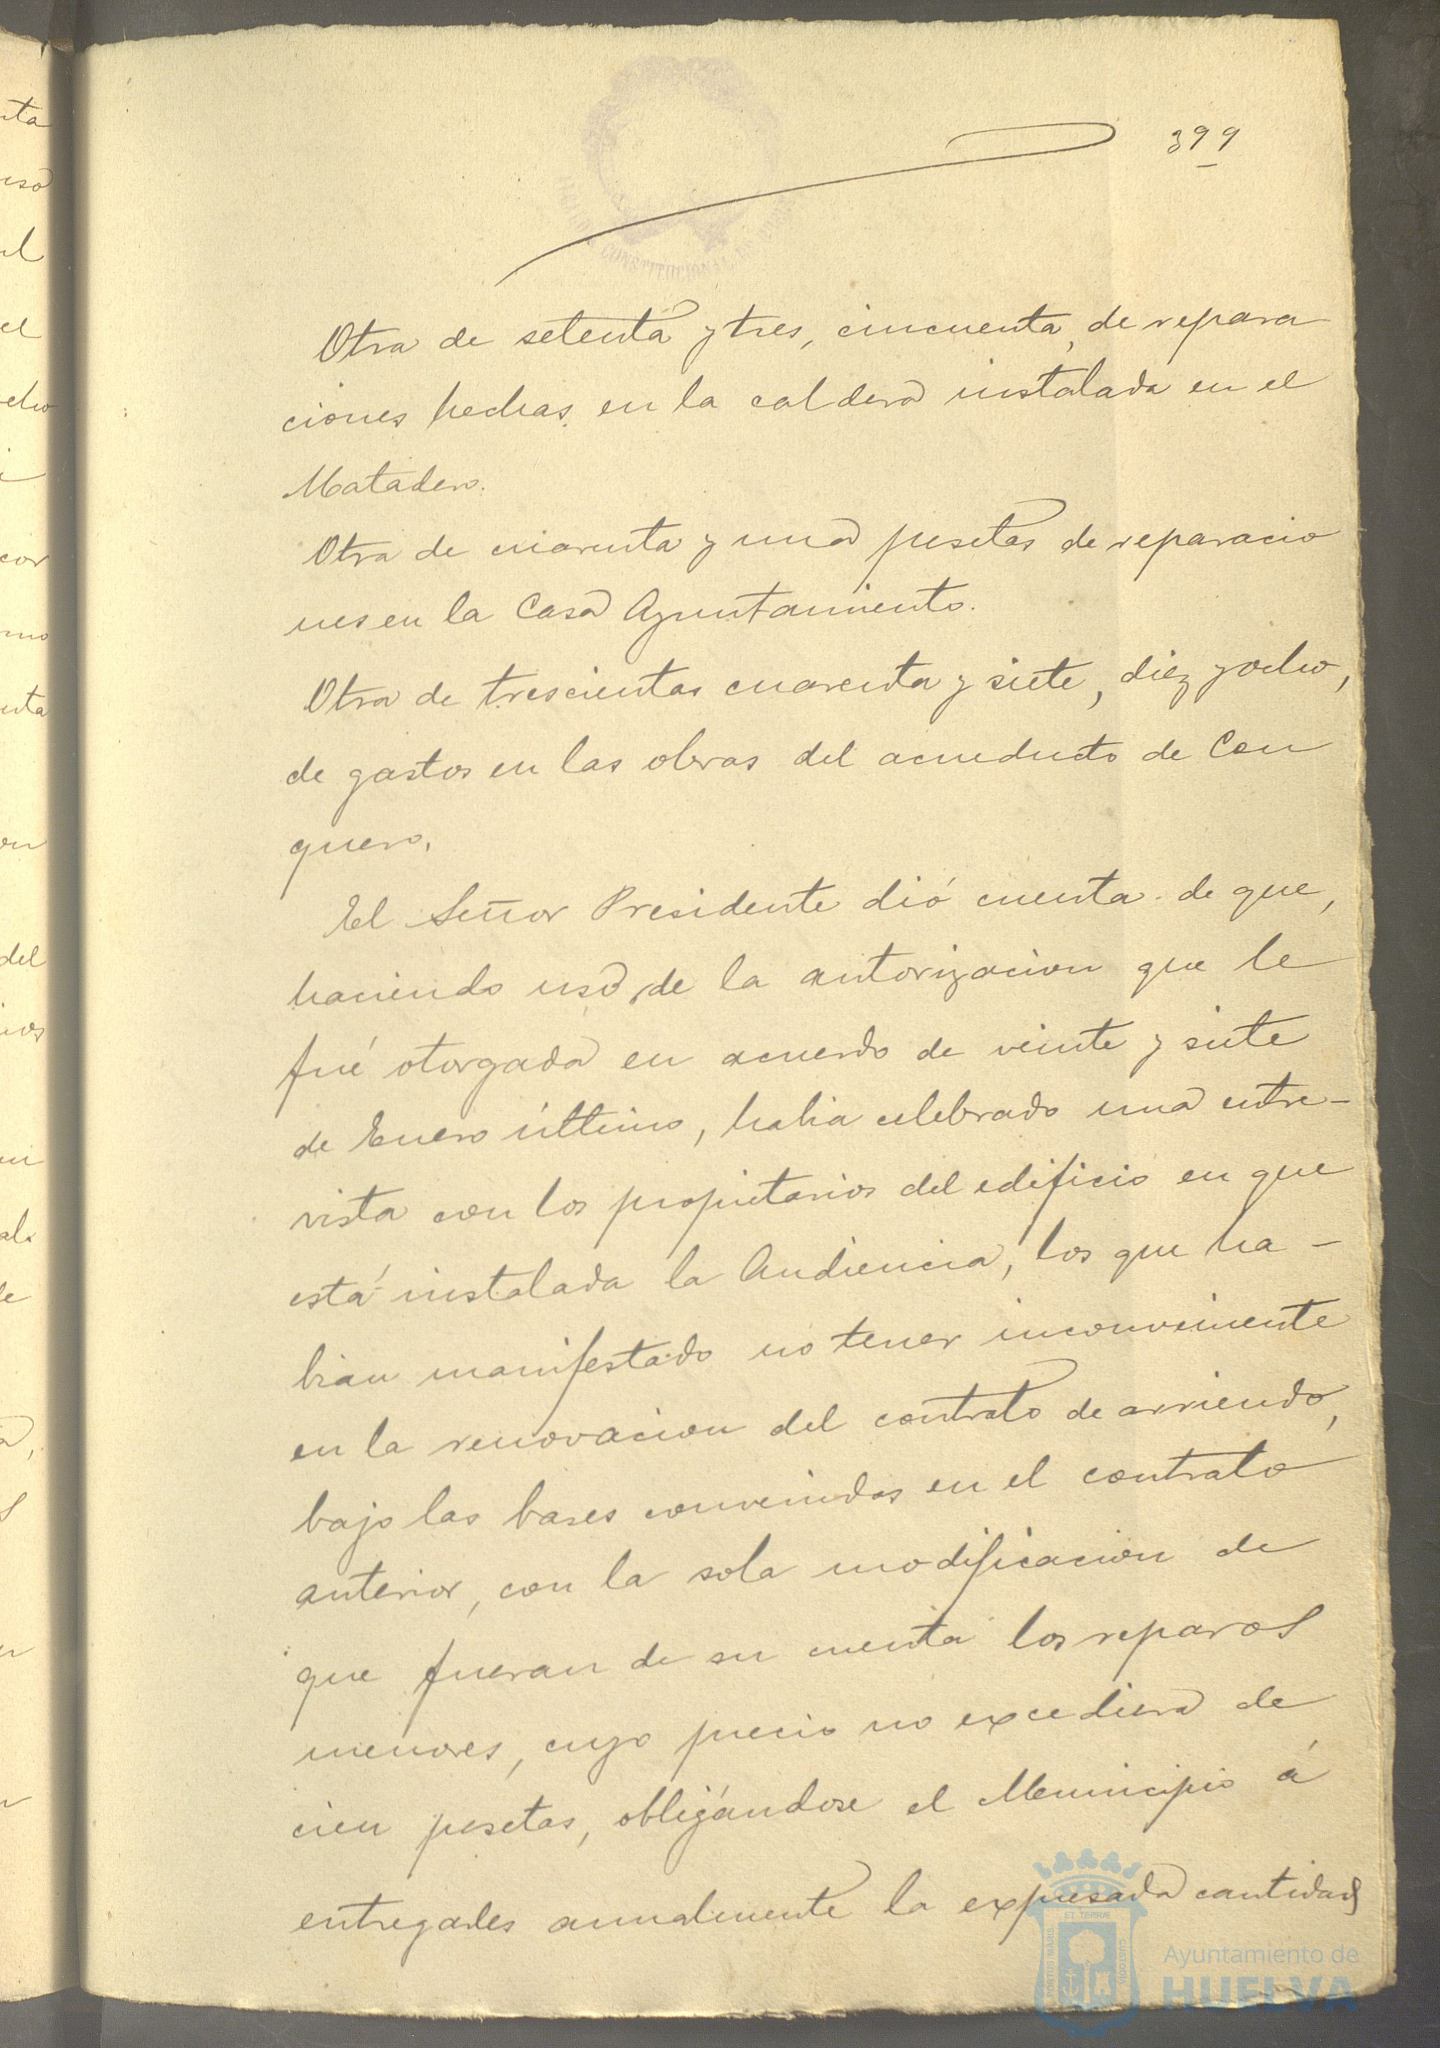 399
Otra de setenta y tres, cincuenta, de repara
ciones hechas en la caldera instalada en el
Matadero.
Otra de cuarenta y una pesetas de reparacio
nes en la Casa Ayuntamiento.
Otra de trescientas cuarenta y siete, diez y ocho,
de gastos en las obras del acueducto de Con
quero.
El Señor Presidente dió cuenta de que,
haciendo uso de la autorizacion que le
fué otorgada en acuerdo de veinte y siete
de Enero último, habia celebrado una entre-
vista con los propietarios del edificio en que
está instalada la Audiencia, los que ha-
bian manifestado no tener inconveniente
en la renovacion del contrato de arriendo,
bajo las bases convenidas en el contrato
anterior, con la sola modificacion de
que fueran de su cuenta los reparos
menores, cuyo precio no excediera de
cien pesetas, obligándose el Municipio á
entregarles anualmente la expresada cantidad
CONSTITUCIONAL
Ayuntamiento de
HUELVA